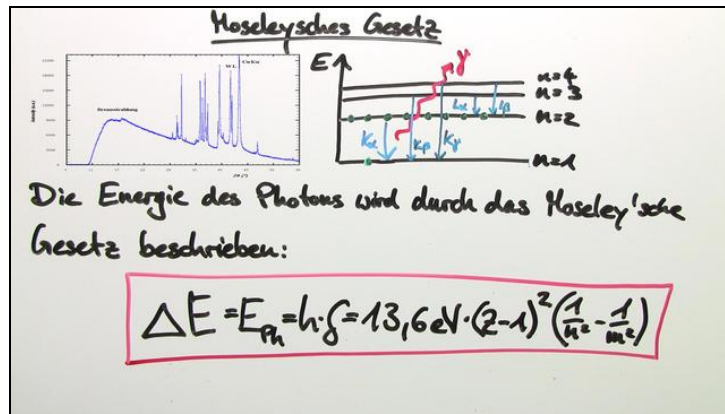 Moseleysches Gesetz
Bremsstrahlung
W L
Cu Kα
E
γ
n=4
n=3
n=2
n=1
Kα
Kβ
Kγ
Lα
Lβ
Die Energie des Photons wird durch das Moseley'sche
Gesetz beschrieben:
ΔE = E_Ph = h·f = 13,6 eV·(Z-1)² (1/n² - 1/m²)